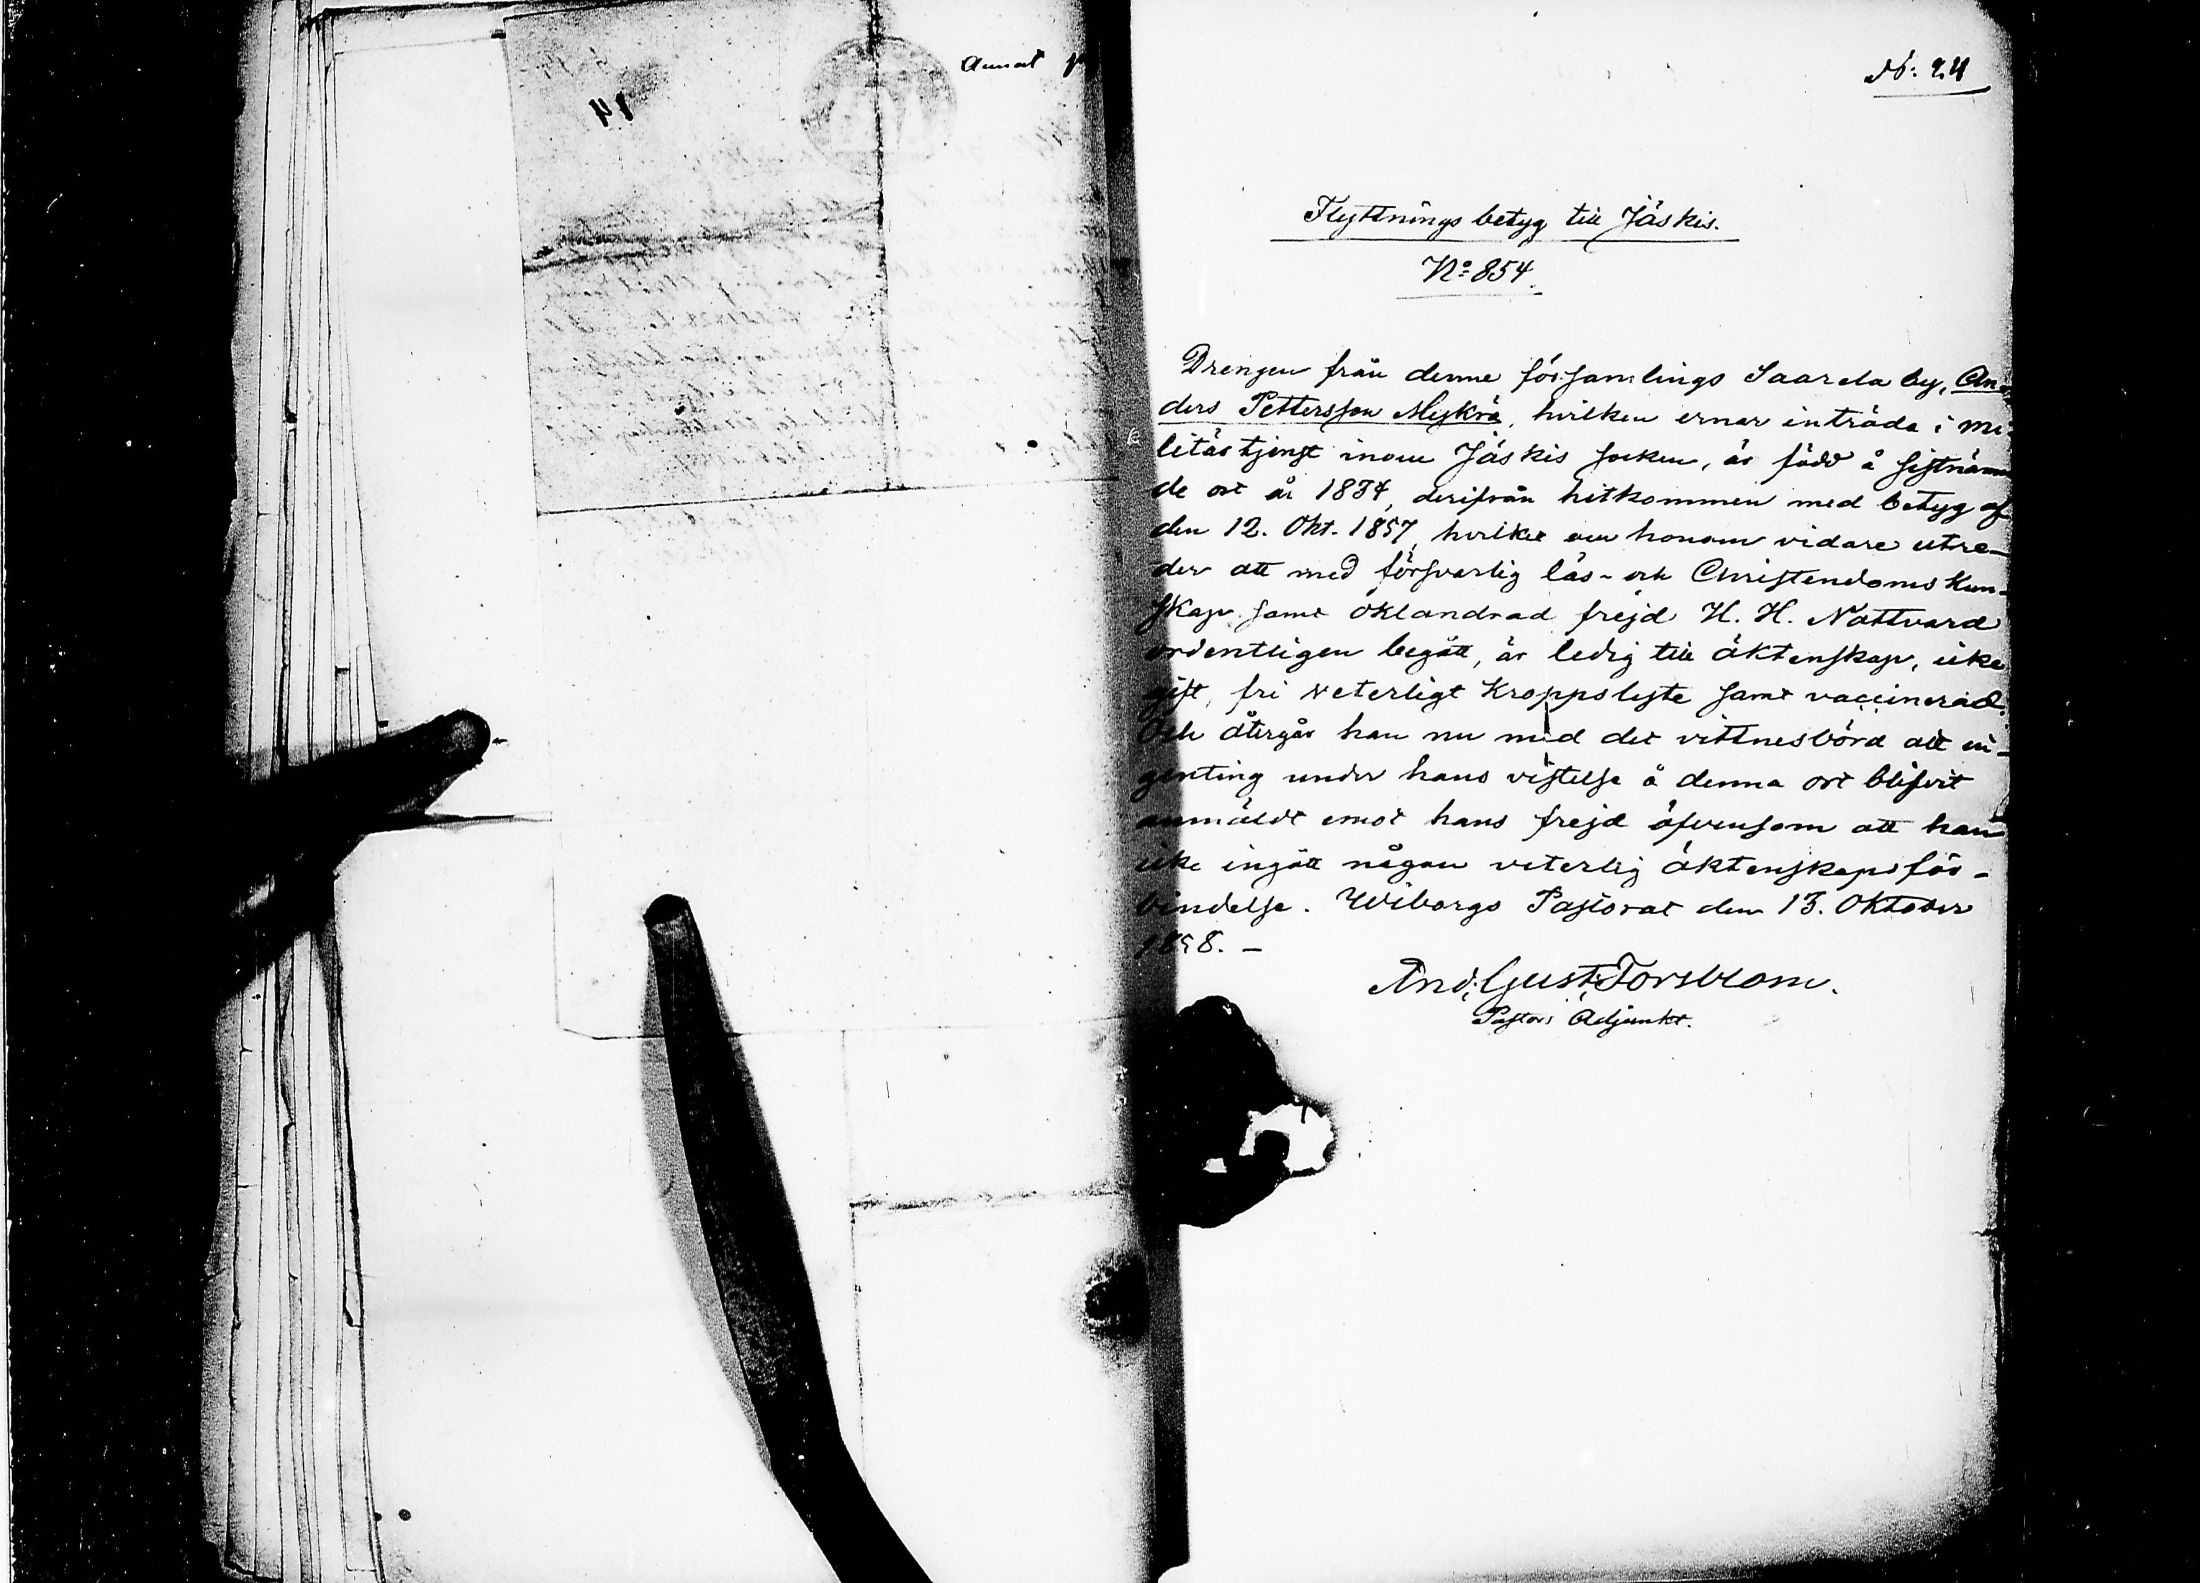 14
Annat
No: 24
Flyttnings betyg till Jäskis.
No 854.
Drengen från denne församlings Saarela by, An-
ders Pettersson Myskrä, hvilken ernar inträda i mi-
litärtjenst inom Jäskis socken, är född å sistnämn
de ort år 1834, derifrån hitkommen med betyg af
den 12. Okt. 1857, hvilket om honom vidare utre-
der att med försvarlig läs- och Christendoms kun-
skap samt oklandrad frejd H. H. Nattvard
ordentligen begått, är ledig till äktenskap, icke
gift, fri veterligt kroppslyte samt vaccinerad.
Och återgår han nu med det vittnesbörd att in-
genting under hans vistelse å denna ort blifvit
anmäldt emot hans frejd äfvensom att han
icke ingått någon veterlig äktenskaps för-
bindelse. Wiborgs Pastorat den 13. Oktober
1858. –
And: Gust: Forsblom.
Pastors Adjunkt.